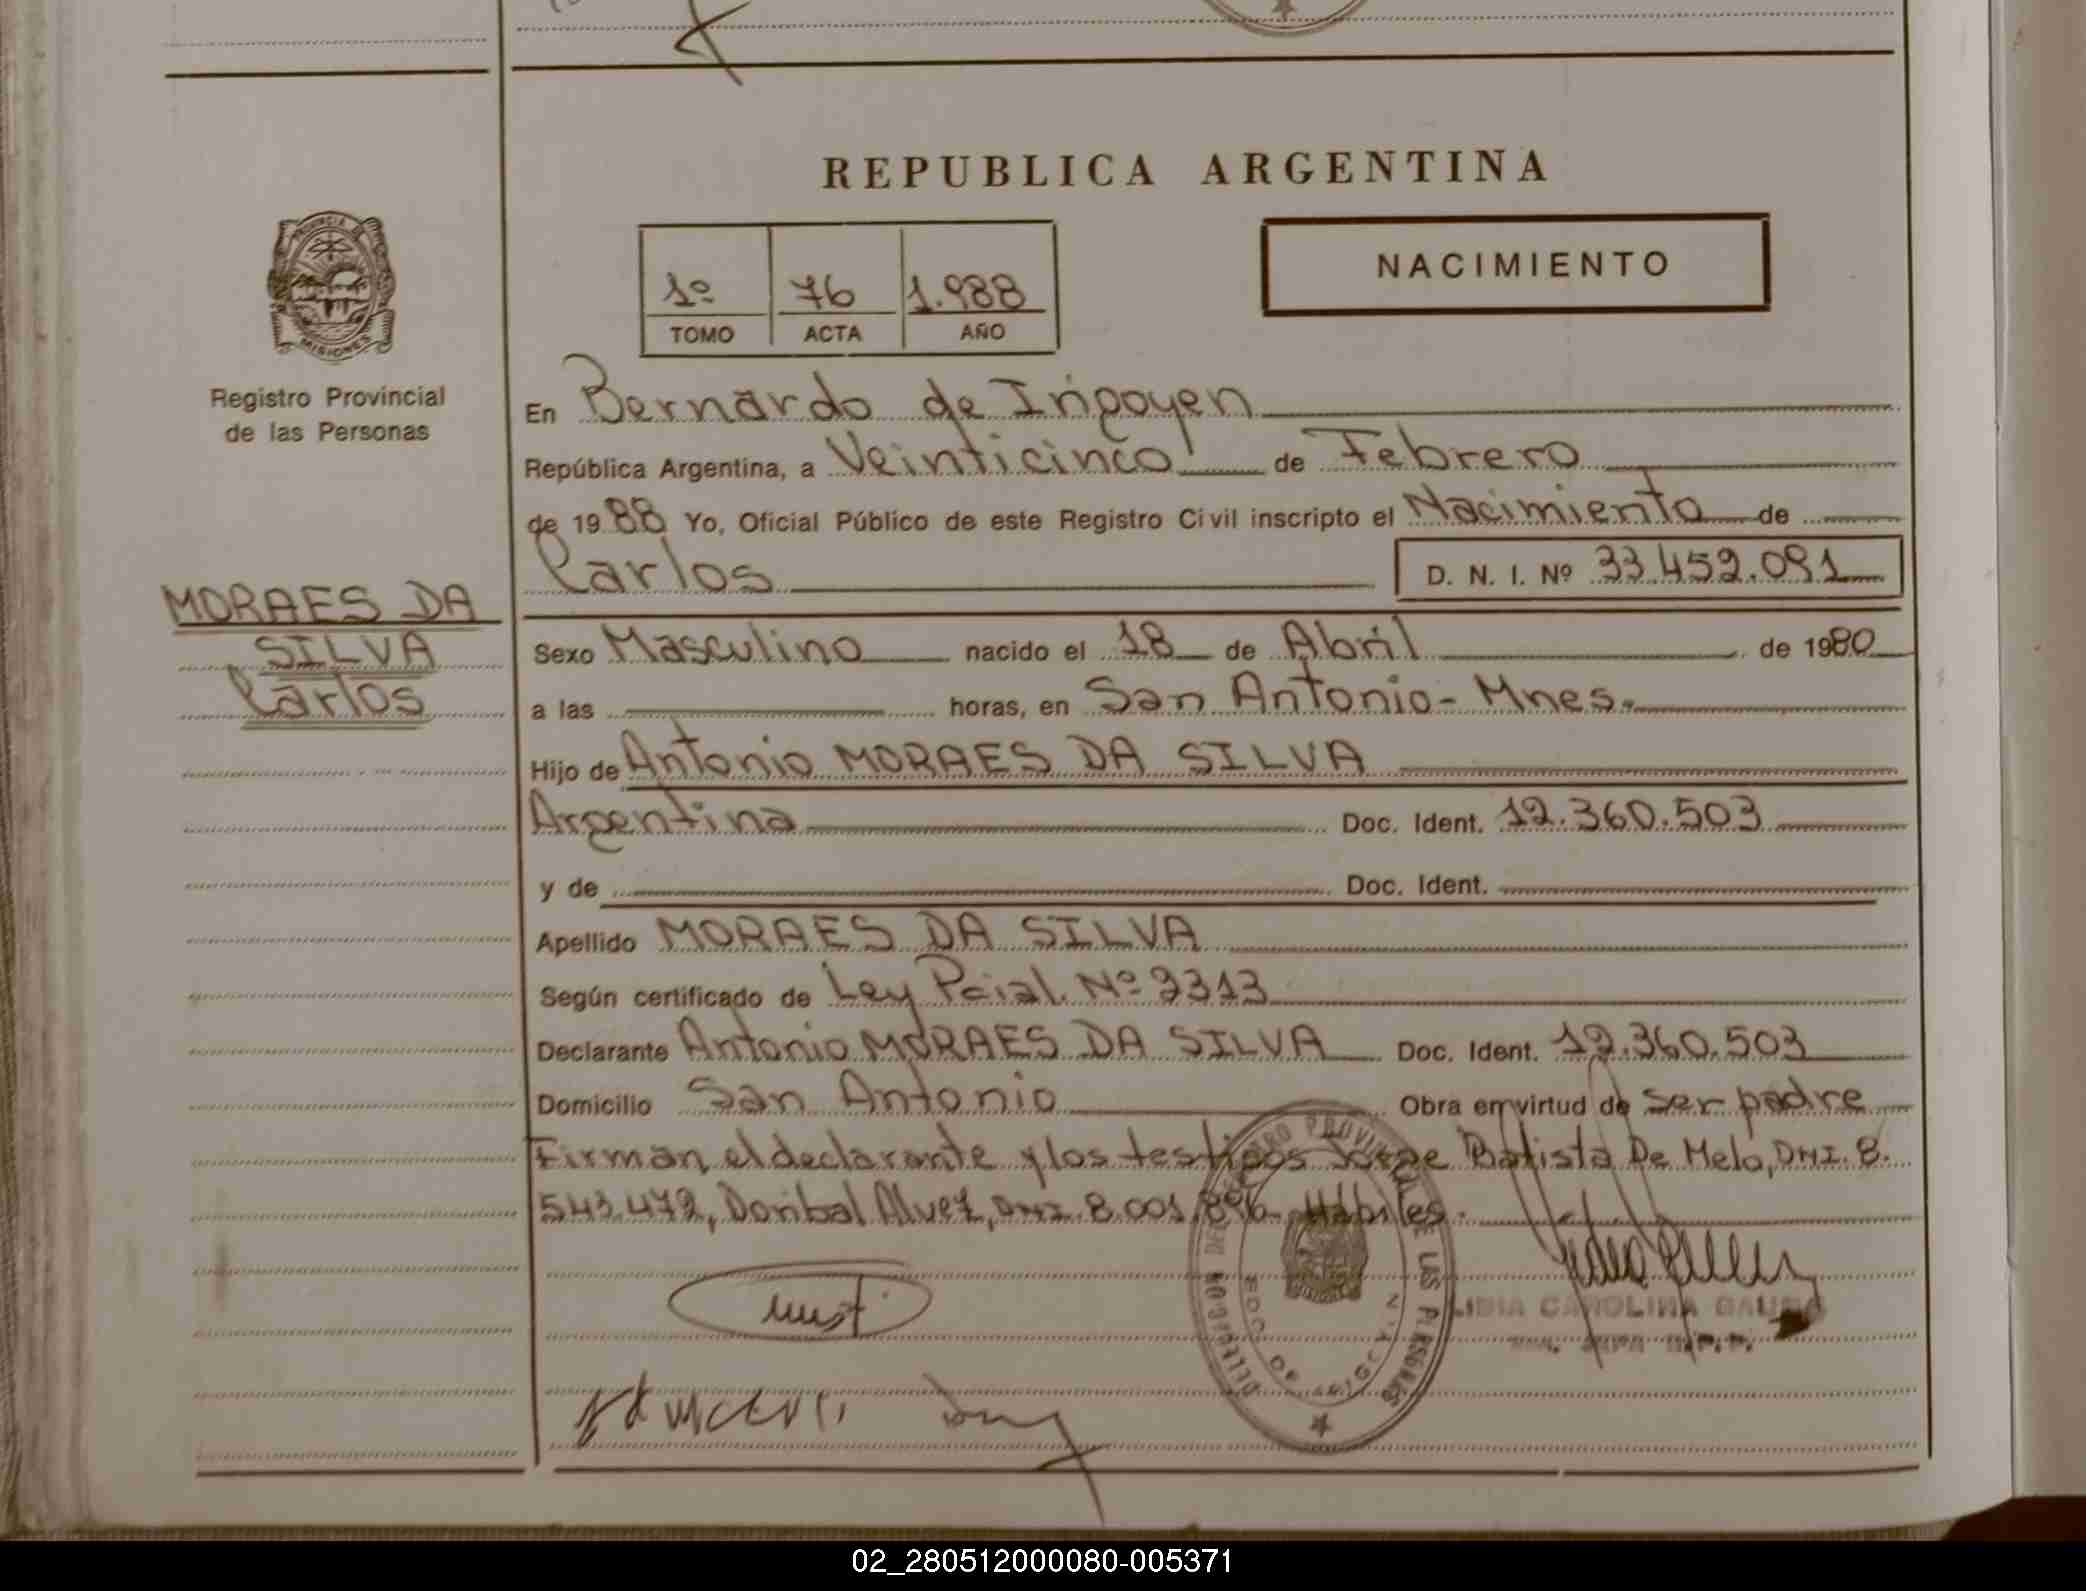 REPUBLICA ARGENTINA
PROVINCIA DE
MISIONES
Registro Provincial
de las Personas
1º 76 1.988
TOMO ACTA AÑO
NACIMIENTO
En Bernardo de Irigoyen
República Argentina, a Veinticinco de Febrero
de 1988 Yo, Oficial Público de este Registro Civil inscripto el Nacimiento de
Carlos D. N. I. Nº 33.452.091
MORAES DA
SILVA
Carlos
Sexo Masculino nacido el 18 de Abril de 1980
a las horas, en San Antonio - Mnes.
Hijo de Antonio MORAES DA SILVA
Argentina Doc. Ident. 12.360.503
y de Doc. Ident.
Apellido MORAES DA SILVA
Según certificado de Ley Pcial. Nº 2313
Declarante Antonio MORAES DA SILVA Doc. Ident. 12.360.503
Domicilio San Antonio Obra en virtud de ser padre
Firman el declarante y los testigos Jorge Batista De Melo, DNI. 8.
543.472, Doribal Alvez, DNI 8.001.896 Hábiles.
LIDIA CAROLINA
02_280512000080-005371